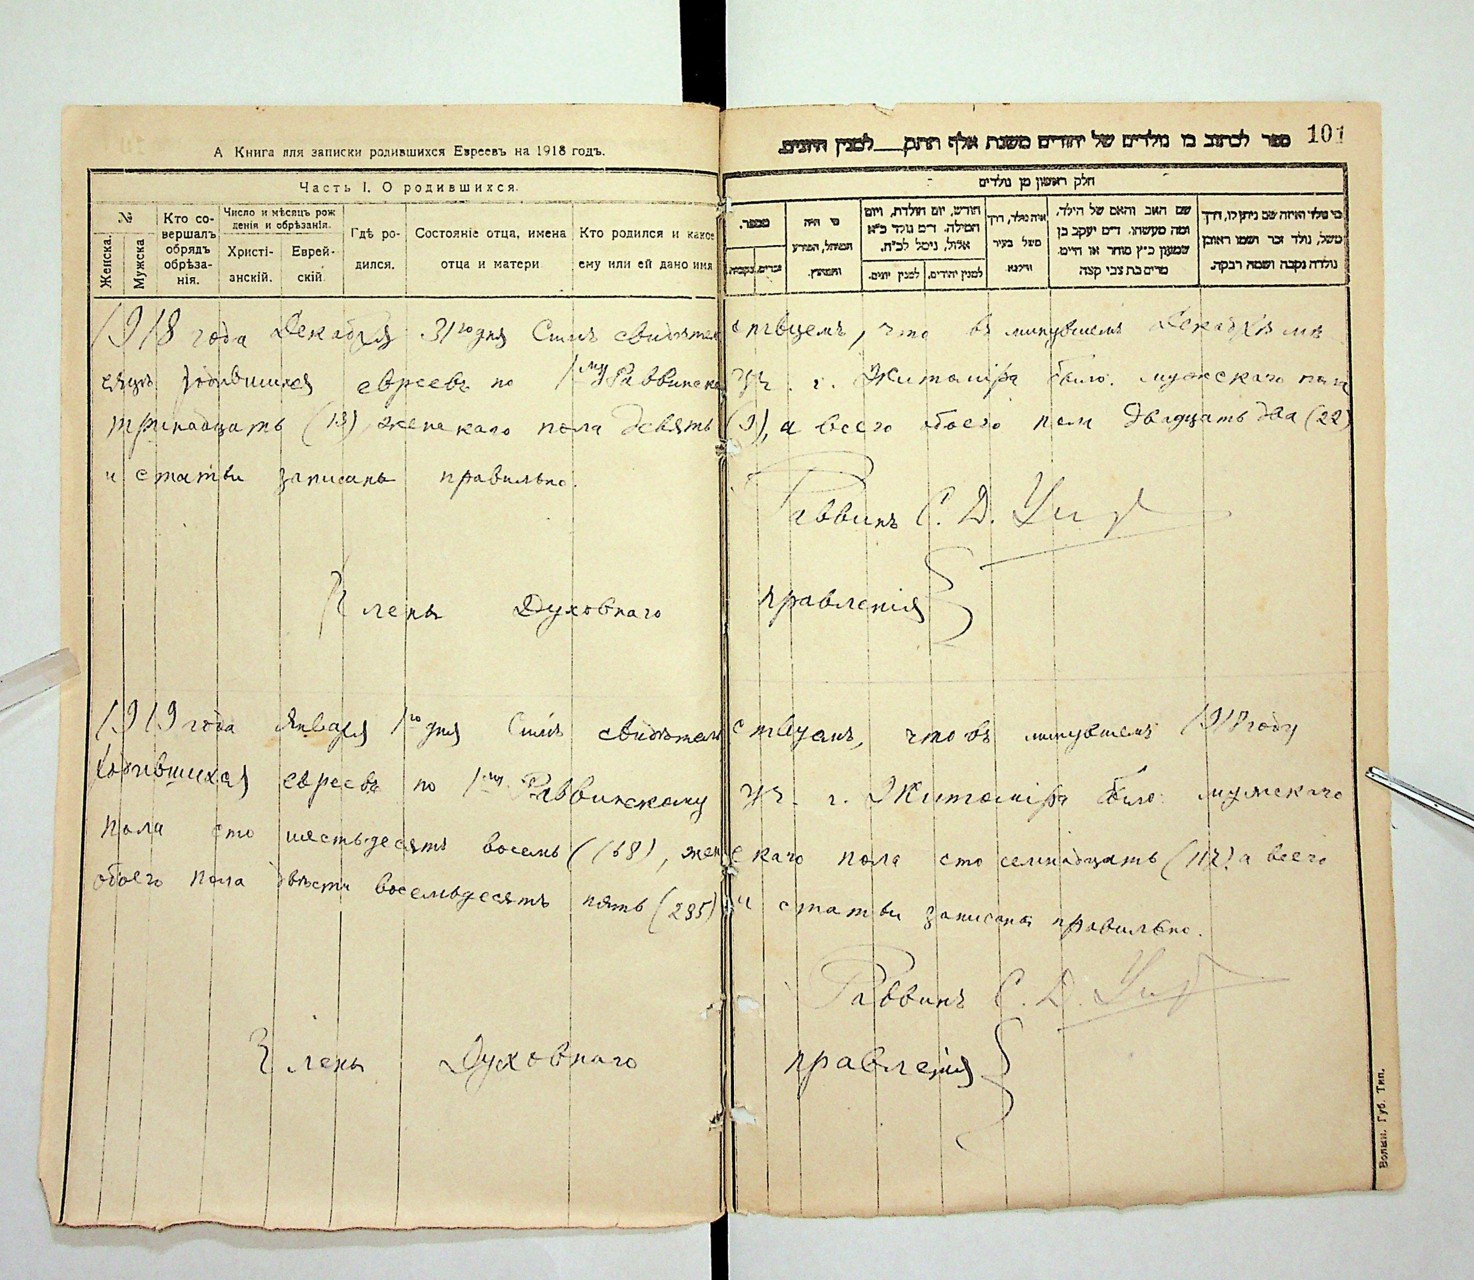 А Книга для записки родившихся Евреевъ на 1918 годъ.
ספר לכתוב בו נולדים של יהודים משנת אלף תתק למנין היונים.
101
Часть I. О родившихся.
חלק ראשון מן נולדים
№
Женска.
Мужска
Кто со-
вершалъ
обрядъ
обрѣза-
нія.
Число и мѣсяцъ рож
денія и обрѣзанія.
Христі-
анскій.
Еврей-
скій.
Гдѣ ро-
дился.
Состояніе отца, имена
отца и матери
Кто родился и какое
ему или ей дано имя
מספר.
זכרים.
נקבות.
מי היה
המוהל, הפורע
והמוצץ.
חודש, יום הולדת, ויום
המילה. ד״מ נולד כ״א
אלול, נימל לכ״ח.
למנין יונים.
למנין יהודים.
איה נולד, דרך
משל בעיר
ווילנא
שם האב והאם של הילד,
ומה מעשהו. ד״מ יעקב בן
שמעון כ״ץ סוחר או חיים.
מרים בת צבי קצה
מי נולד ואיזה שם ניתן לו, דרך
משל, נולד זכר ושמו ראובן
נולדה נקבה ושמה רבקה.
1918 года Декабря 31го дня Симъ свидѣтельствуемъ, что въ минувшемъ Декабрѣ мѣ
сяцѣ родившихся евреевъ по 1му Раввинско уч. г. Житоміра было: мужскаго пола
тринадцать (13) женскаго пола девять (9), а всего обоего пола двадцать два (22)
и статьи записаны правильно.
Раввинъ С. Д.
Члены Духовнаго правленія
1919 года Января 1го дня Симъ свидѣтельствуемъ, что въ минувшемъ 1918 году
родившихся евреевъ по 1му Раввинскому уч. г. Житоміра было: мужскаго
пола сто шестьдесятъ восемь (168), женскаго пола сто семнадцать (117) а всего
обоего пола двѣсти восемьдесятъ пять (285) и статьи записаны правильно.
Раввинъ С. Д.
Члены Духовнаго правленія
Волын. Губ. Тип.